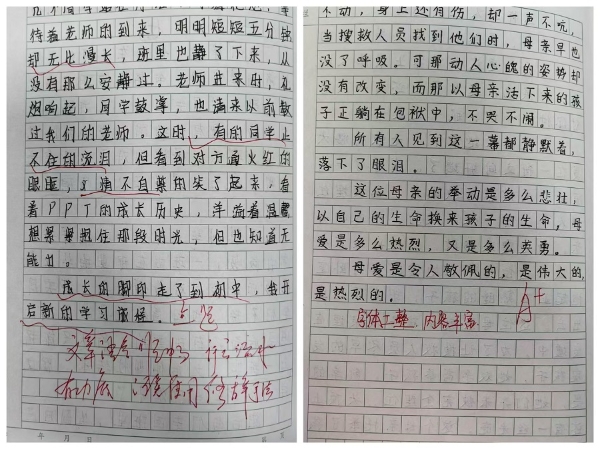 待着老师的到来，明明短短五分钟
却无比漫长，班里也静了下来，从
没有那么安静过。老师进来时，礼
炮响起，同学鼓掌，也请来以前教
过我们的老师。这时，有的同学止
不住的流泪，但看到对方通火红的
眼眶，不自禁的笑了起来，看
着PPT的成长历史，洋溢着温馨
想紧紧抱住那段时光，但也知道无
能力。
成长的脚印走了到初中，我开
启新的学习旅程。点题
年 月 日
不动，身上还有伤，却一声不吭，
当搜救人员找到他们时，母亲早也
没了呼吸。可那动人心魄的姿势却
没有改变，而那以母亲活下来的孩
子正躺在包袱中，不哭不闹。
所有人见到这一幕都静默着，
落下了眼泪。
这位母亲的举动是多么悲壮，
以自己的生命换来孩子的生命，母
爱是多么热烈，又是多么英勇。
母爱是令人敬佩的，是伟大的，
是热烈的。
A+
字体工整，内容丰富